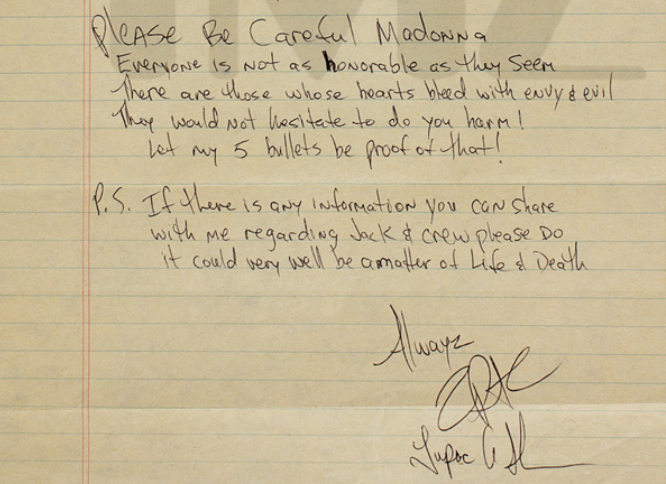 PLEASE Be Careful Madonna
Everyone is not as honorable as they seem
There are those whose hearts bleed with envy & evil
They would not hesitate to do you harm!
Let my 5 bullets be proof of that!
P.S. If there is any information you can share
with me regarding Jack & crew please Do
it could very well be a matter of Life & Death
Alwayz
Tupac A S